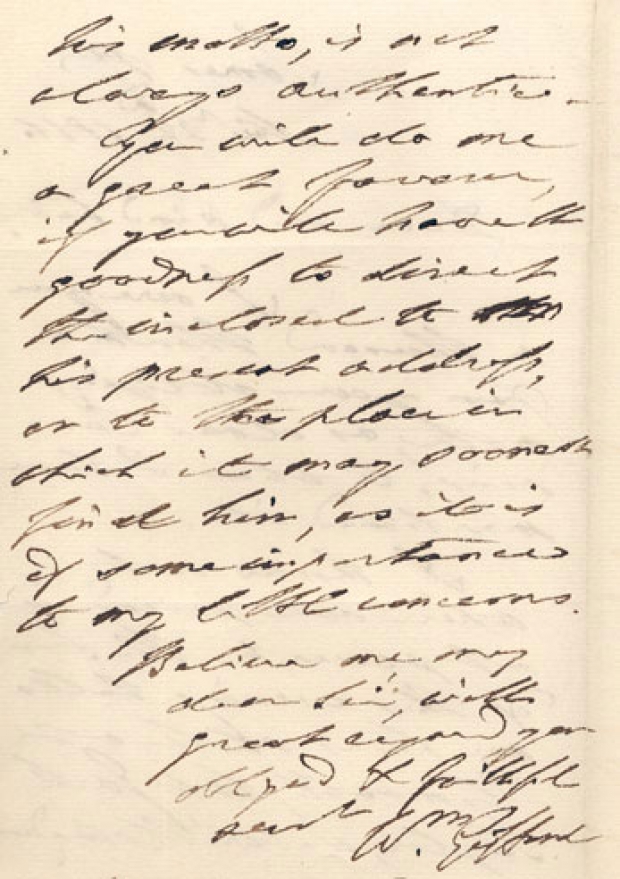 his motto, is not
always authentic.
You will do me
a great favour,
if you will have the
goodness to direct
the inclosed to
his present address,
or to the place in
which it may soonest
find him, as it is
of some importance
to my little concerns.
Believe me, my
dear Sir, with
great regard your
obliged & faithful
servt
Wm Gifford